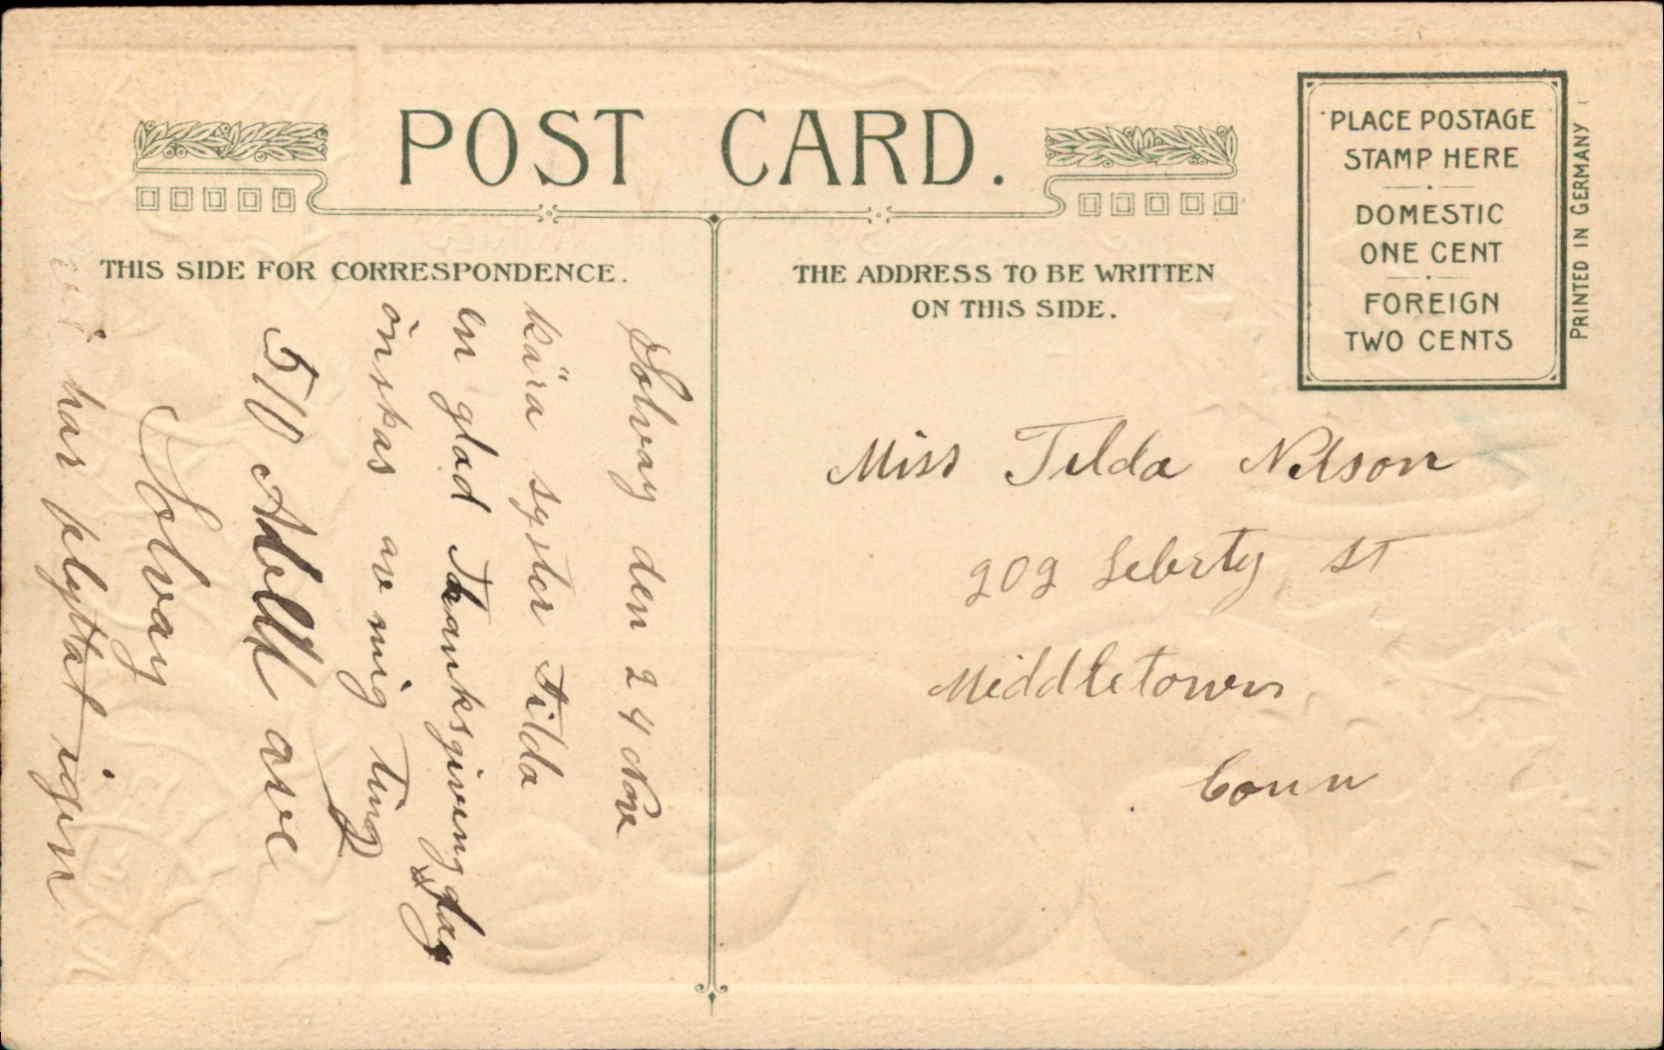 POST CARD.
THIS SIDE FOR CORRESPONDENCE.
THE ADDRESS TO BE WRITTEN
ON THIS SIDE.
PLACE POSTAGE
STAMP HERE
DOMESTIC
ONE CENT
FOREIGN
TWO CENTS
PRINTED IN GERMANY
Solvay den 24 Nov
kära syster Tilda
en glad Thanksgiving day
önskas av mig
510 ave
Solvay
har flyttat igen
Miss Tilda Nelson
202 Liberty St
Middletown
Conn